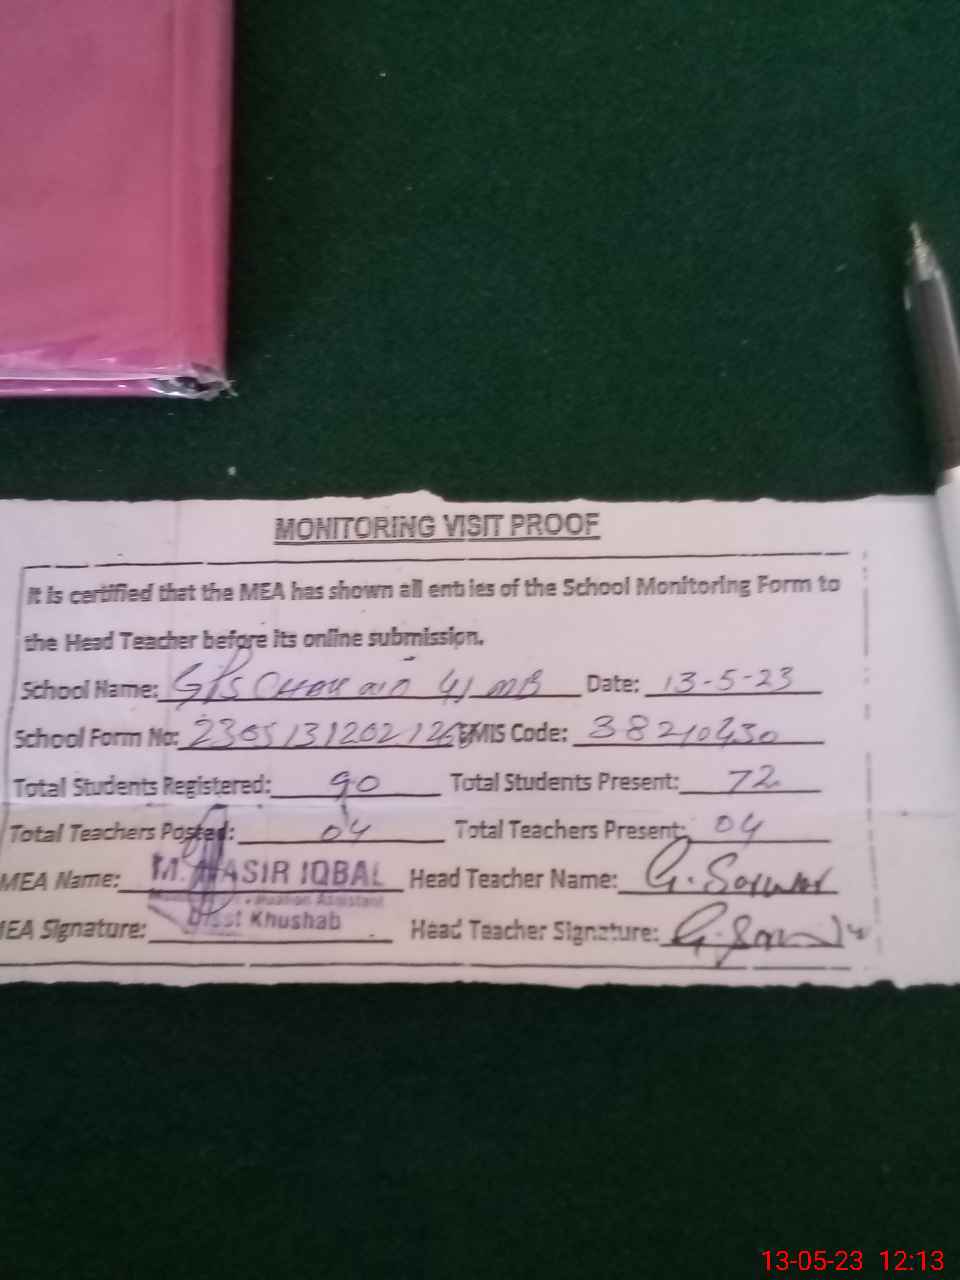 MONITORING VISIT PROOF
It is certified that the MEA has shown all entries of the School Monitoring Form to
the Head Teacher before its online submission.
School Name: GPS 41 MB Date: 13-5-23
School Form No: EMIS Code: 38210430
Total Students Registered: 90 Total Students Present: 72
Total Teachers Posted: 04 Total Teachers Present: 04
MEA Name: M. NASIR IQBAL Head Teacher Name: G. Sarwar
Assistant
MEA Signature: Distt Khushab Head Teacher Signature: G. Sarwar
13-05-23 12:13